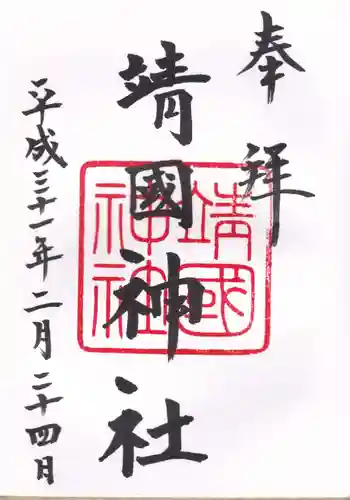 奉拝
靖國神社
靖國
神社
平成三十一年二月二十四日